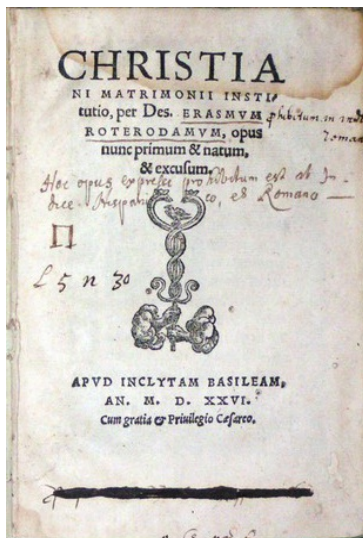 CHRISTIA
NI MATRIMONII INSTI-
tutio, per Des. ERASMVM phibitum in indi
ROTERODAMVM, opus Roman
nunc primum & natum,
& excusum.
Hoc opus expresse prohibitum est ab In-
dice Hispanico, et Romano
L 5 n 30
APVD INCLYTAM BASILEAM,
AN. M. D. XXVI.
Cum gratia & Priuilegio Cæsareo.